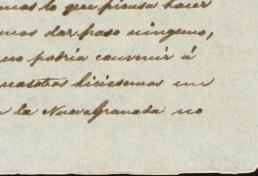 mas lo que piensa hacer
mos dar paso ninguno,
podria convenir á
nosotros hiciesemos un
la Nueva Granada no